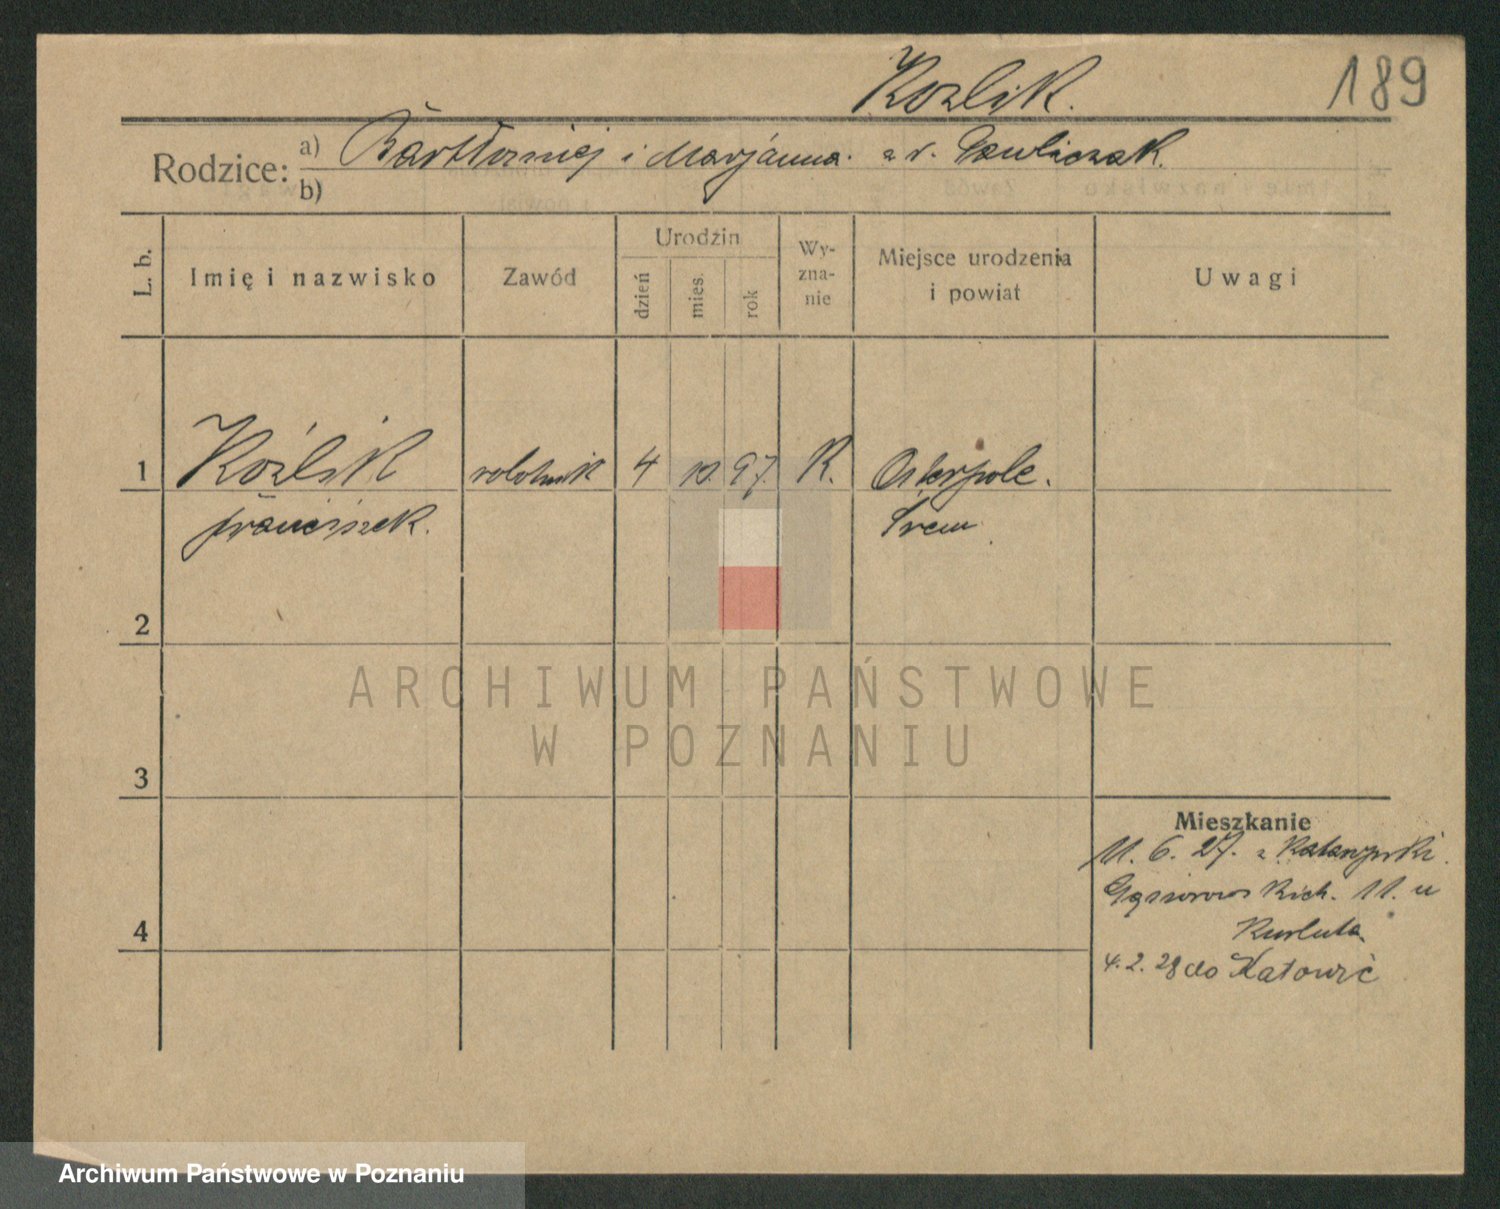 Kozlik.
189
Rodzice:
a) Bartłomiej i Marjanna. z r. Pawliczak.
b)
L. b.
Imię i nazwisko
Zawód
Urodzin
dzień
mies.
rok
Wy-
zna-
nie
Miejsce urodzenia
i powiat
Uwagi
1
Koźlik
robotnik
4
10.
97.
K.
Osterpole.
Franciszek.
Śrem
2
3
4
Mieszkanie
11. 6. 27. z
11. u
4. 2. 28 do Katowic
ARCHIWUM PAŃSTWOWE
W POZNANIU
Archiwum Państwowe w Poznaniu